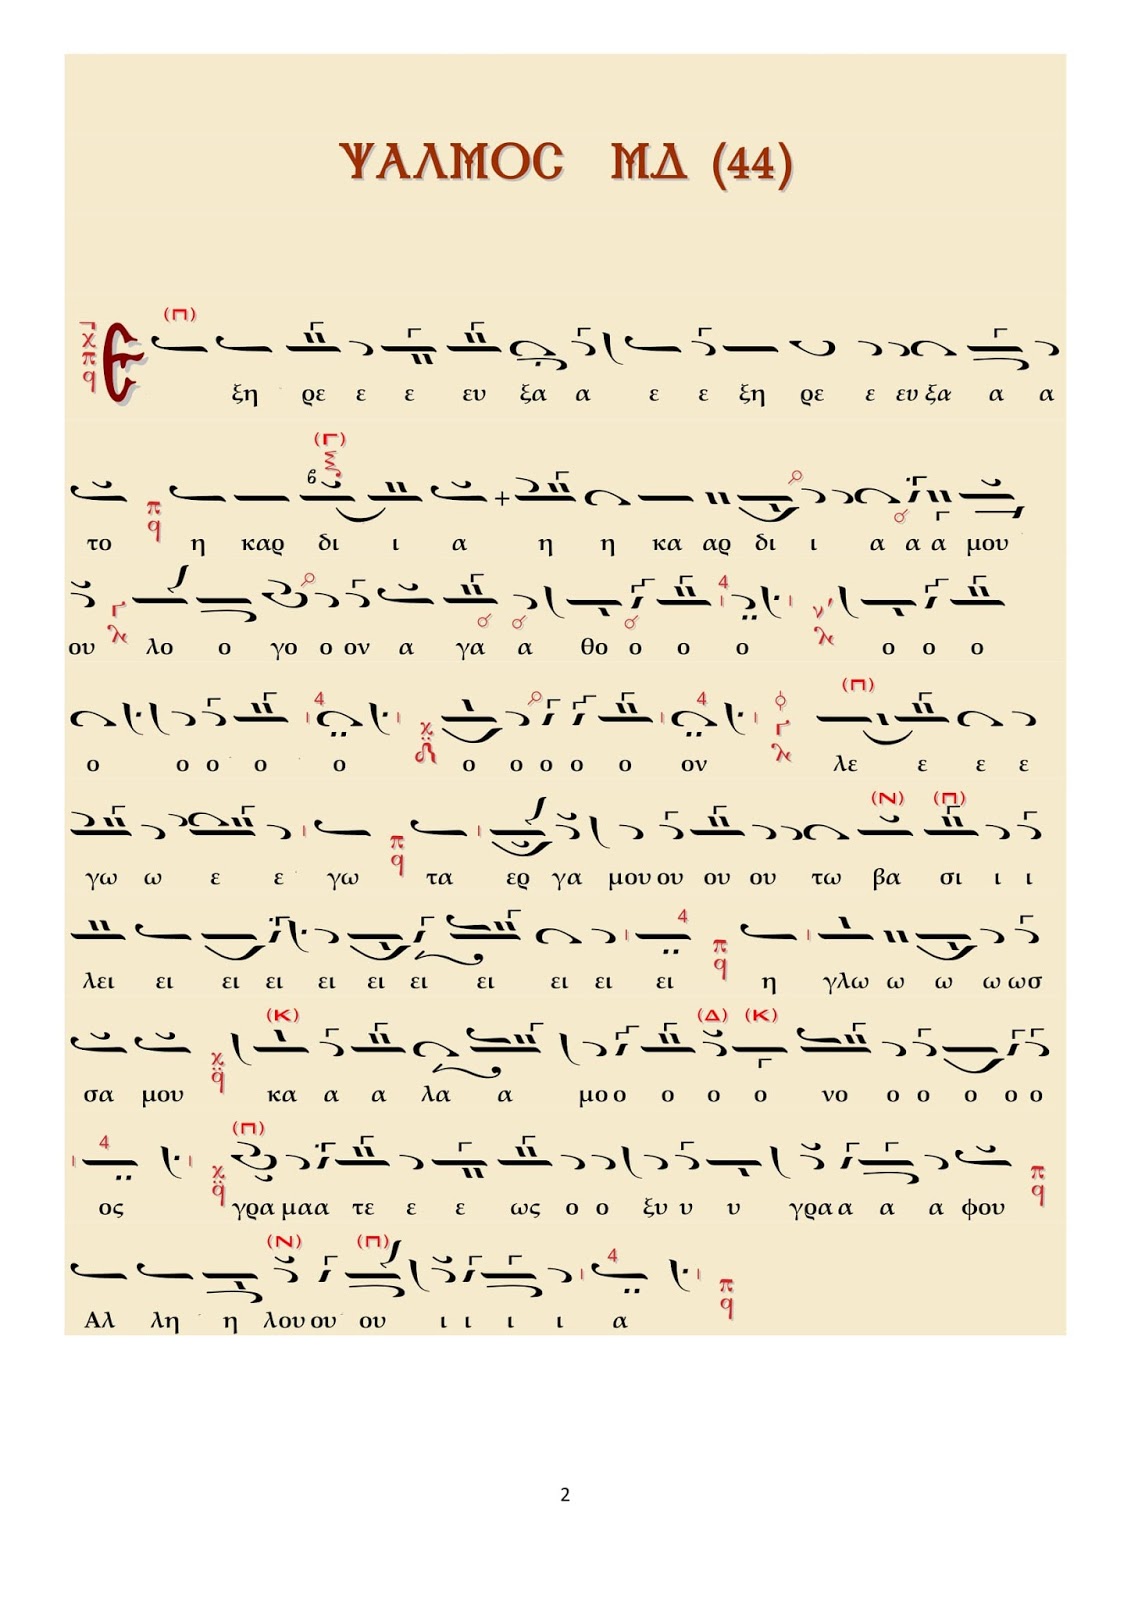 ΨΑΛΜΟΣ ΜΔ (44)
(Π)
Ε ξη ρε ε ε ευ ξα α ε ε ξη ρε ε ευ ξα α α
(Γ)
το η καρ δι ι α η η κα αρ δι ι α α α μου
ου λο ο γο ο ον α γα α θο ο ο ο ο ο ο
(Π)
ο ο ο ο ο ο ο ο ο ο ον λε ε ε ε
(Ν) (Π)
γω ω ε ε γω τα ερ γα μου ου ου ου τω βα σι ι ι
λει ει ει ει ει ει ει ει ει ει ει η γλω ω ω ω ωσ
(Κ) (Δ) (Κ)
σα μου κα α α λα α μο ο ο ο ο νο ο ο ο ο ο
(Π)
ος γρα μαα τε ε ε ως ο ο ξυ υ υ γρα α α α φου
(Ν) (Π)
Αλ λη η λου ου ου ι ι ι ι α
2